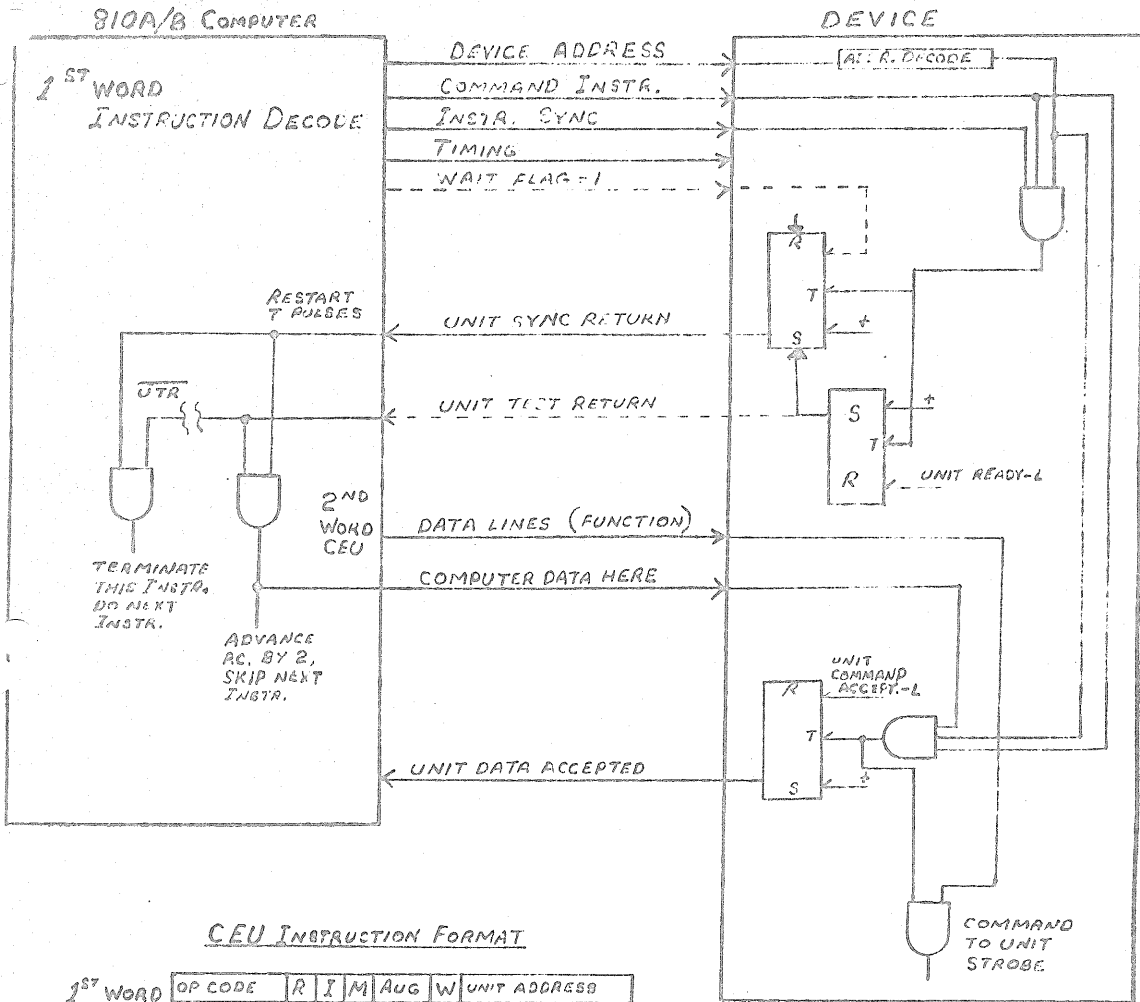 810A/B COMPUTER
DEVICE
1ST WORD
INSTRUCTION DECODE
DEVICE ADDRESS
COMMAND INSTR.
INSTR. SYNC
TIMING
WAIT FLAG-1
DECODE
R
T
S
+
RESTART
T PULSES
UNIT SYNC RETURN
UTR
UNIT TEST RETURN
S
T
R
+
UNIT READY-L
2ND
WORD
CEU
DATA LINES (FUNCTION)
COMPUTER DATA HERE
TERMINATE
THIS INSTR.
DO NEXT
INSTR.
ADVANCE
BY 2,
SKIP NEXT
INSTR.
UNIT
COMMAND
ACCEPT.-L
R
T
S
+
UNIT DATA ACCEPTED
COMMAND
TO UNIT
STROBE
CEU INSTRUCTION FORMAT
1ST WORD OP CODE R I M AUG W UNIT ADDRESS